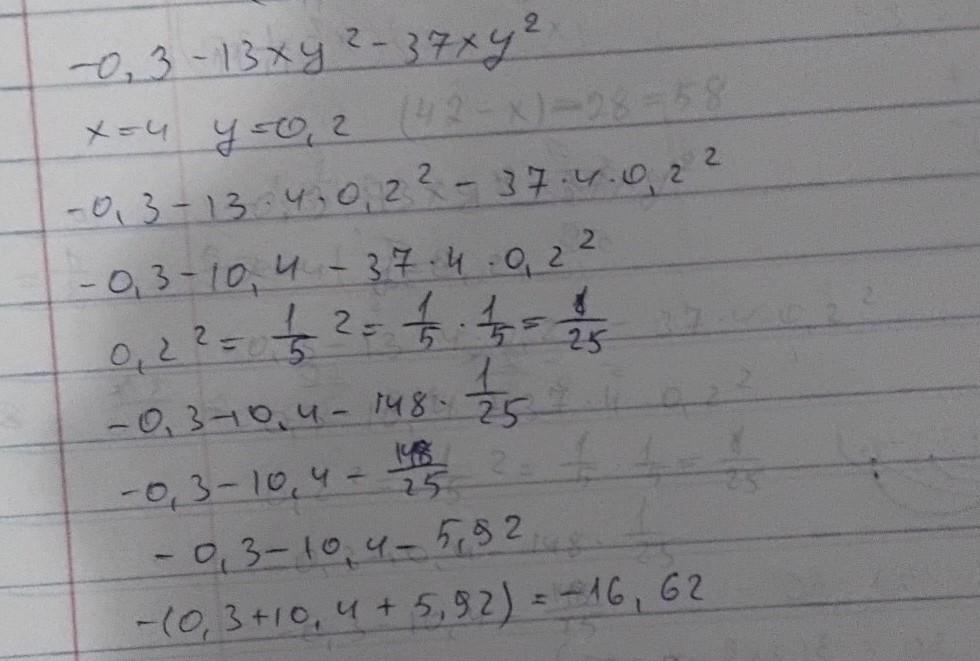 -0,3-13xy²-37xy²
x=4 y=0,2 (42-x)-28=58
-0,3-13·4·0,2²-37·4·0,2²
-0,3-10,4-37·4·0,2²
0,2²=1/5²=1/5·1/5=1/25
-0,3-10,4-148·1/25
-0,3-10,4-148/25
-0,3-10,4-5,92
-(0,3+10,4+5,92)=-16,62